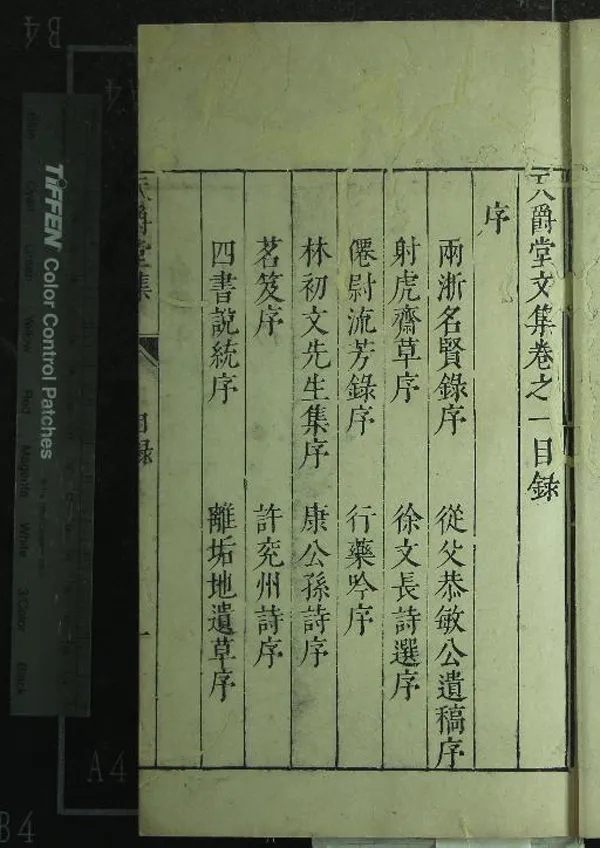 天爵堂文集卷之一目録
序
兩浙名賢錄序 從父恭敏公遺稿序
射虎齋草序 徐文長詩選序
僊尉流芳錄序 行藥吟序
林初文先生集序 康公孫詩序
茗笈序 許兗州詩序
四書說統序 離垢地遺草序
天爵堂集 目錄 一
TIFFEN Color Control Patches
Blue Cyan Green Yellow Red Magenta White 3/Color Black
B4
A4
A4
B4